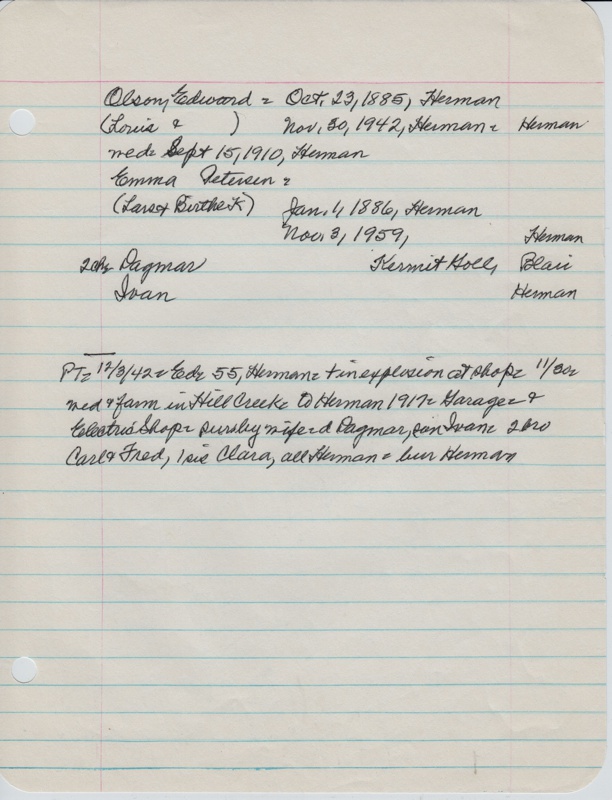 Olson, Edward = Oct. 23, 1885, Herman
(Louis & ) Nov. 30, 1942, Herman = Herman
wed= Sept 15, 1910, Herman
Emma Petersen =
(Lars & Birthe K) Jan. 1, 1886, Herman
Nov. 3, 1959, Herman
2ch= Dagmar Kermit Holl, Blair
Ivan Herman
PT= 12/3/42= Ed= 55, Herman= + in explosion at shop= 11/30=
wed & farm in Hill Creek= to Herman 1917= Garage= &
Electric Shop= surv by wife= d Dagmar, son Ivan= 2 bro
Carl & Fred, 1 sis Clara, all Herman= bur Herman